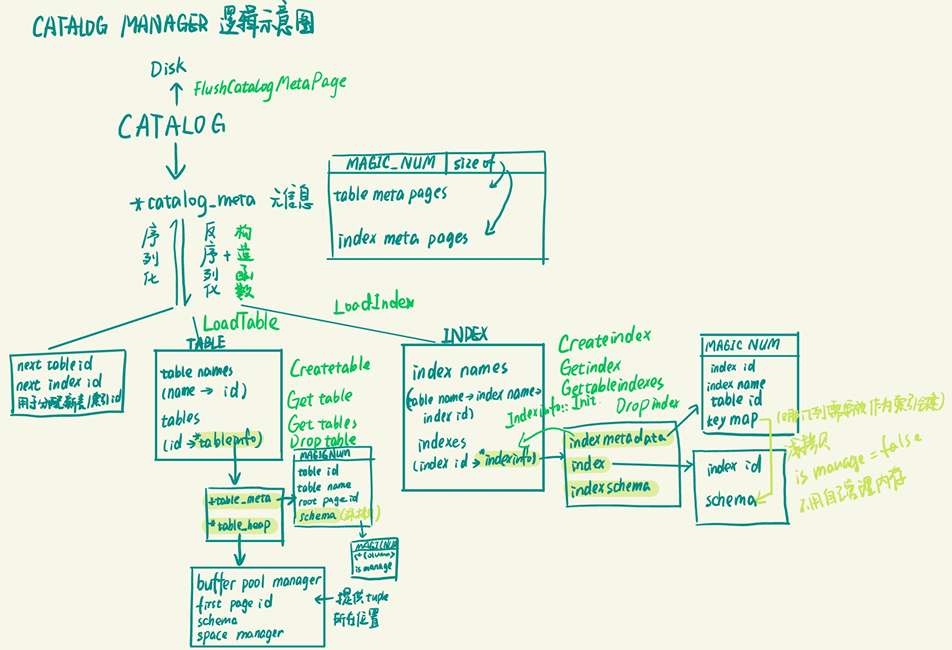 CATALOG MANAGER 逻辑示意图
Disk
FlushCatalogMetaPage
CATALOG
*catalog_meta 元信息
MAGIC_NUM size of
table meta pages
index meta pages
序列化
反序列化 + 构造函数
LoadTable
LoadIndex
next table id
next index id
用于分配新表/索引id
TABLE
table names
(name → id)
tables
(id → *tableinfo)
Createtable
Get table
Get tables
Drop table
*table_meta
*table_heap
MAGICNUM
table id
table name
root page id
schema (深拷贝)
MAGICNUM
(*Column)
is manage
buffer pool manager
first page id
schema
space manager
提供tuple
所在位置
INDEX
index names
(table name → index name →
index id)
indexes
(index id → *indexinfo)
Createindex
Getindex
Gettableindexes
Dropindex
Indexinfo::Init
indexmetadata
index
indexschema
MAGIC NUM
index id
index name
table id
key map
index id
schema
浅拷贝
is manage = false
不用自己管理内存